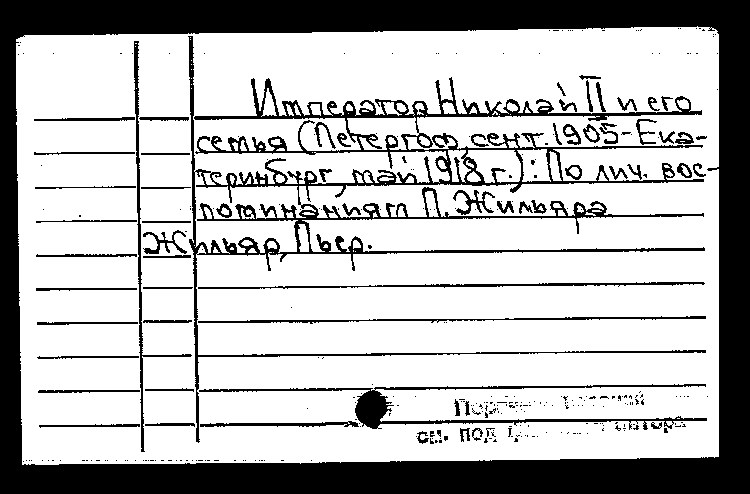 Император Николай II и его
семья (Петергоф, сент. 1905-Ека-
теринбург, май 1918 г.): По лич. вос-
поминаниям П. Жильяра
Жильяр, Пьер.
см. под